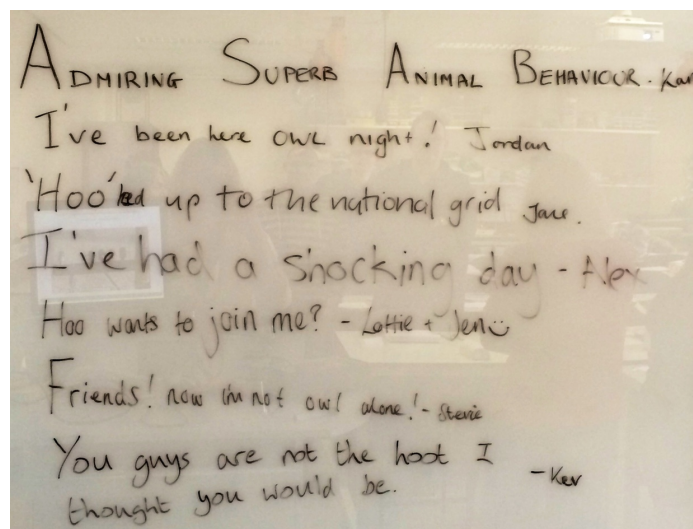 ADMIRING SUPERB ANIMAL BEHAVIOUR. Kar
I've been here owl night! Jordan
'Hoo'ked up to the national grid Jane.
I've had a shocking day - Alex
Hoo wants to join me? - Lottie + Jen
Friends! now im not owl alone! - Stevie
You guys are not the hoot I
thought you would be. - Kev